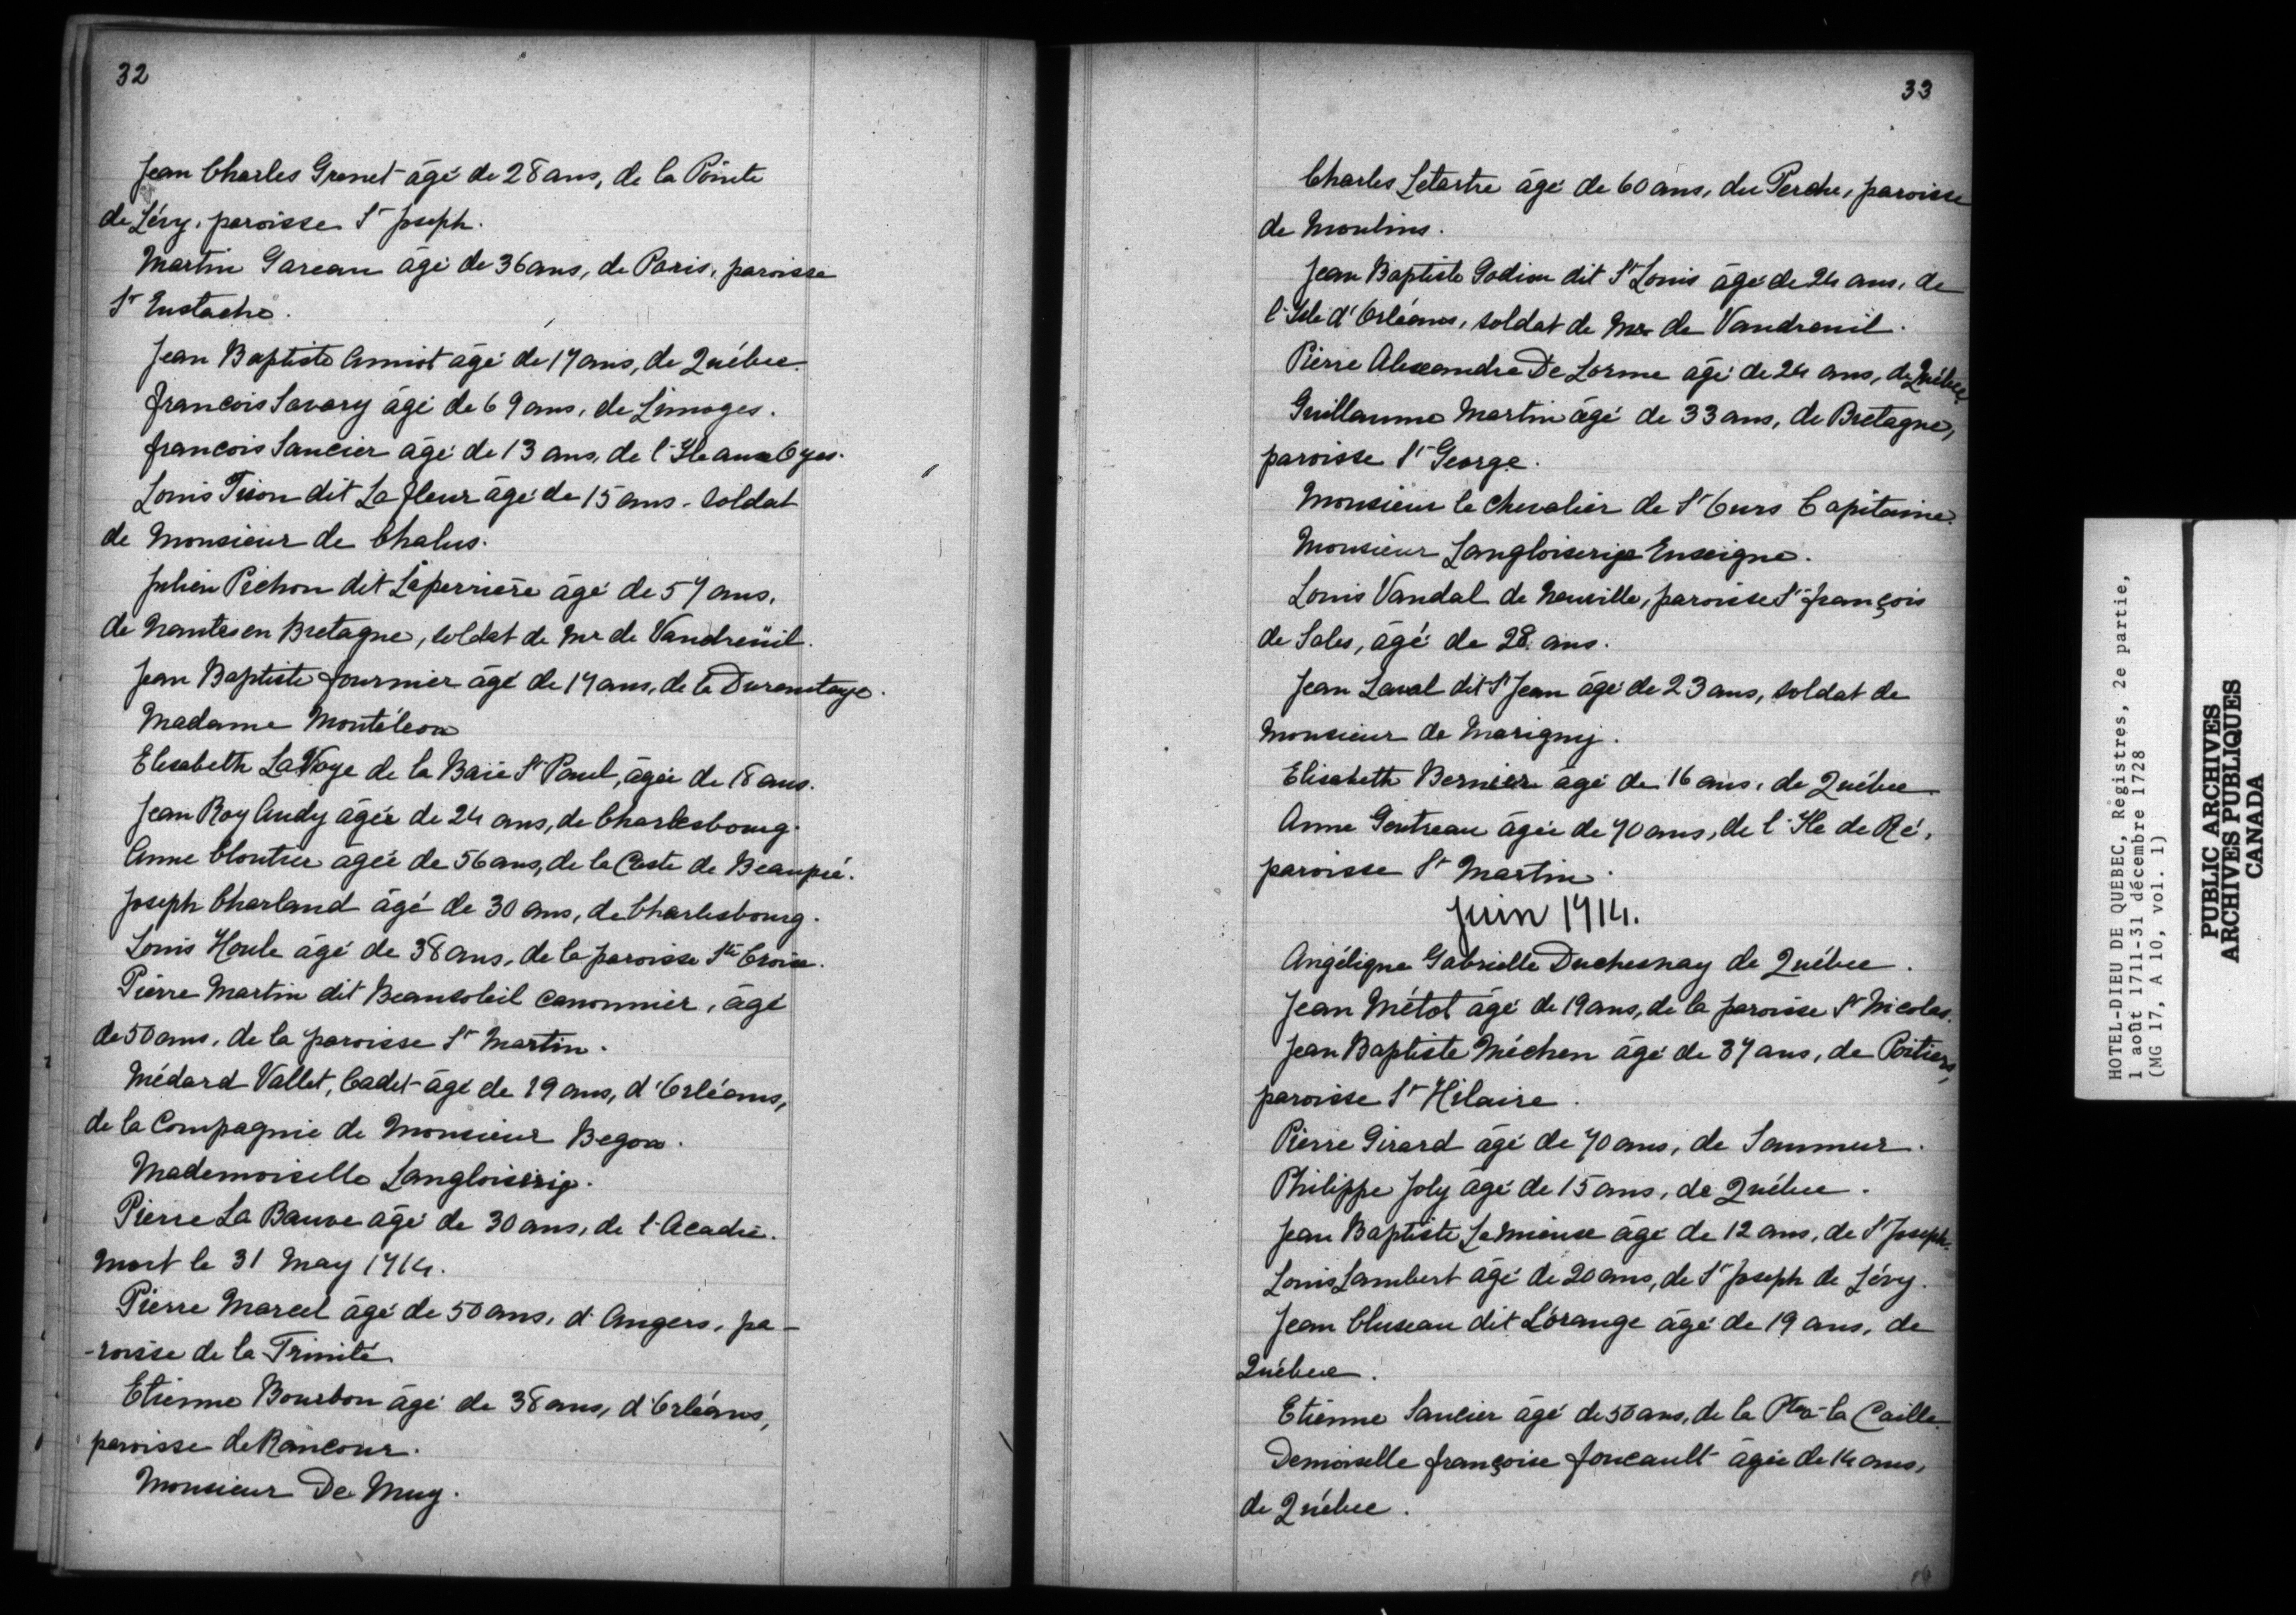 32
Jean Charles Grenet âgé de 28 ans, de la Pointe
de Lévy, paroisse St Joseph.
Martin Gareau âgé de 36 ans, de Paris, paroisse
St Eustache.
Jean Baptiste Amiot âgé de 17 ans, de Québec.
françois Savary âgé de 69 ans, de Limoges.
françois Saucier âgé de 13 ans, de l'Ile aux Oyes.
Louis Tison dit La fleur âgé de 15 ans - soldat
de Monsieur de Chalus.
Julien Pichon dit Laperrière âgé de 57 ans,
de Nantes en Bretagne, soldat de Mr de Vaudreüil.
Jean Baptiste fournier âgé de 17 ans, de la Durantaye.
Madame Montéléon
Elisabeth LaVoye de la Baie St Paul, âgée de 18 ans.
Jean Roy Audy âgée de 24 ans, de Charlesbourg.
Anne Cloutier âgée de 56 ans, de la Coste de Beaupré.
Joseph Charland âgé de 30 ans, de Charlesbourg.
Louis Houle âgé de 38 ans, de la paroisse Ste Croix.
Pierre Martin dit Beausoleil canonnier, âgé
de 50 ans, de la paroisse St Martin.
Médard Vallet, Cadet âgé de 19 ans, d'Orléans,
de la Compagnie de Monsieur Begon.
Mademoiselle Langloiserie.
Pierre La Bauve âgé de 30 ans, de l'Acadie.
Mort le 31 May 1714.
Pierre Marcel âgé de 50 ans, d'Angers, pa-
-roisse de la Trinité
Etienne Bourbon âgé de 38 ans, d'Orléans,
paroisse de Rancour.
Monsieur De Muy.
33
Charles Letartre âgé de 60 ans, du Perche, paroisse
de Moulins.
Jean Baptiste Godiou dit St Louis âgé de 24 ans, de
l'Isle d'Orléans, soldat de Mr de Vaudreuil.
Pierre Alexandre De Lorme âgé de 24 ans, de Québec.
Guillaume Martin âgé de 33 ans, de Bretagne,
paroisse St George.
Monsieur le chevalier de St Ours Capitaine.
Monsieur Langloiserie Enseigne.
Louis Vandal de Neuville, paroisse St françois
de Sales, âgé de 28 ans.
Jean Laval dit St Jean âgé de 23 ans, soldat de
Monsieur de Marigny.
Elisabeth Bernier âgé de 16 ans, de Québec
Anne Gentreau âgée de 70 ans, de l'Ile de Ré,
paroisse St Martin.
Juin 1714.
Angélique Gabrielle Duchesnay de Québec.
Jean Métot âgé de 19 ans, de la paroisse St Nicolas.
Jean Baptiste Méchen âgé de 37 ans, de Poitiers,
paroisse St Hilaire.
Pierre Girard âgé de 70 ans, de Saumur.
Philippe Joly âgé de 15 ans, de Québec.
Jean Baptiste Lemieux âgé de 12 ans, de St Joseph.
Louis Lambert âgé de 20 ans, de St Joseph de Lévy.
Jean Cluseau dit L'orange âgé de 19 ans, de
Québec.
Etienne Saucier âgé de 50 ans, de la Pte à la Caille.
Demoiselle françoise foucault âgée de 14 ans,
de Québec.
HOTEL-DIEU DE QUEBEC, Régistres, 2e partie,
1 août 1711-31 décembre 1728
(MG 17, A 10, vol. 1)
PUBLIC ARCHIVES
ARCHIVES PUBLIQUES
CANADA